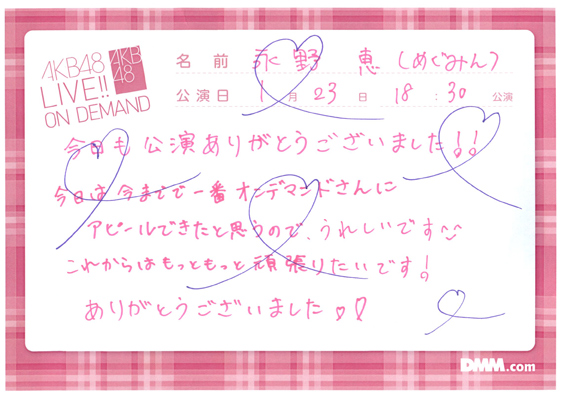 AKB48
LIVE!!
ON DEMAND
AKB
48
名前 永野 恵 (めぐみん)
公演日 1月23日 18:30 公演
今日も公演ありがとうございました!!
今日は今までで一番オンデマンドさんに
アピールできたと思うので、うれしいです
これからはもっともっと頑張りたいです!
ありがとうございました
DMM.com